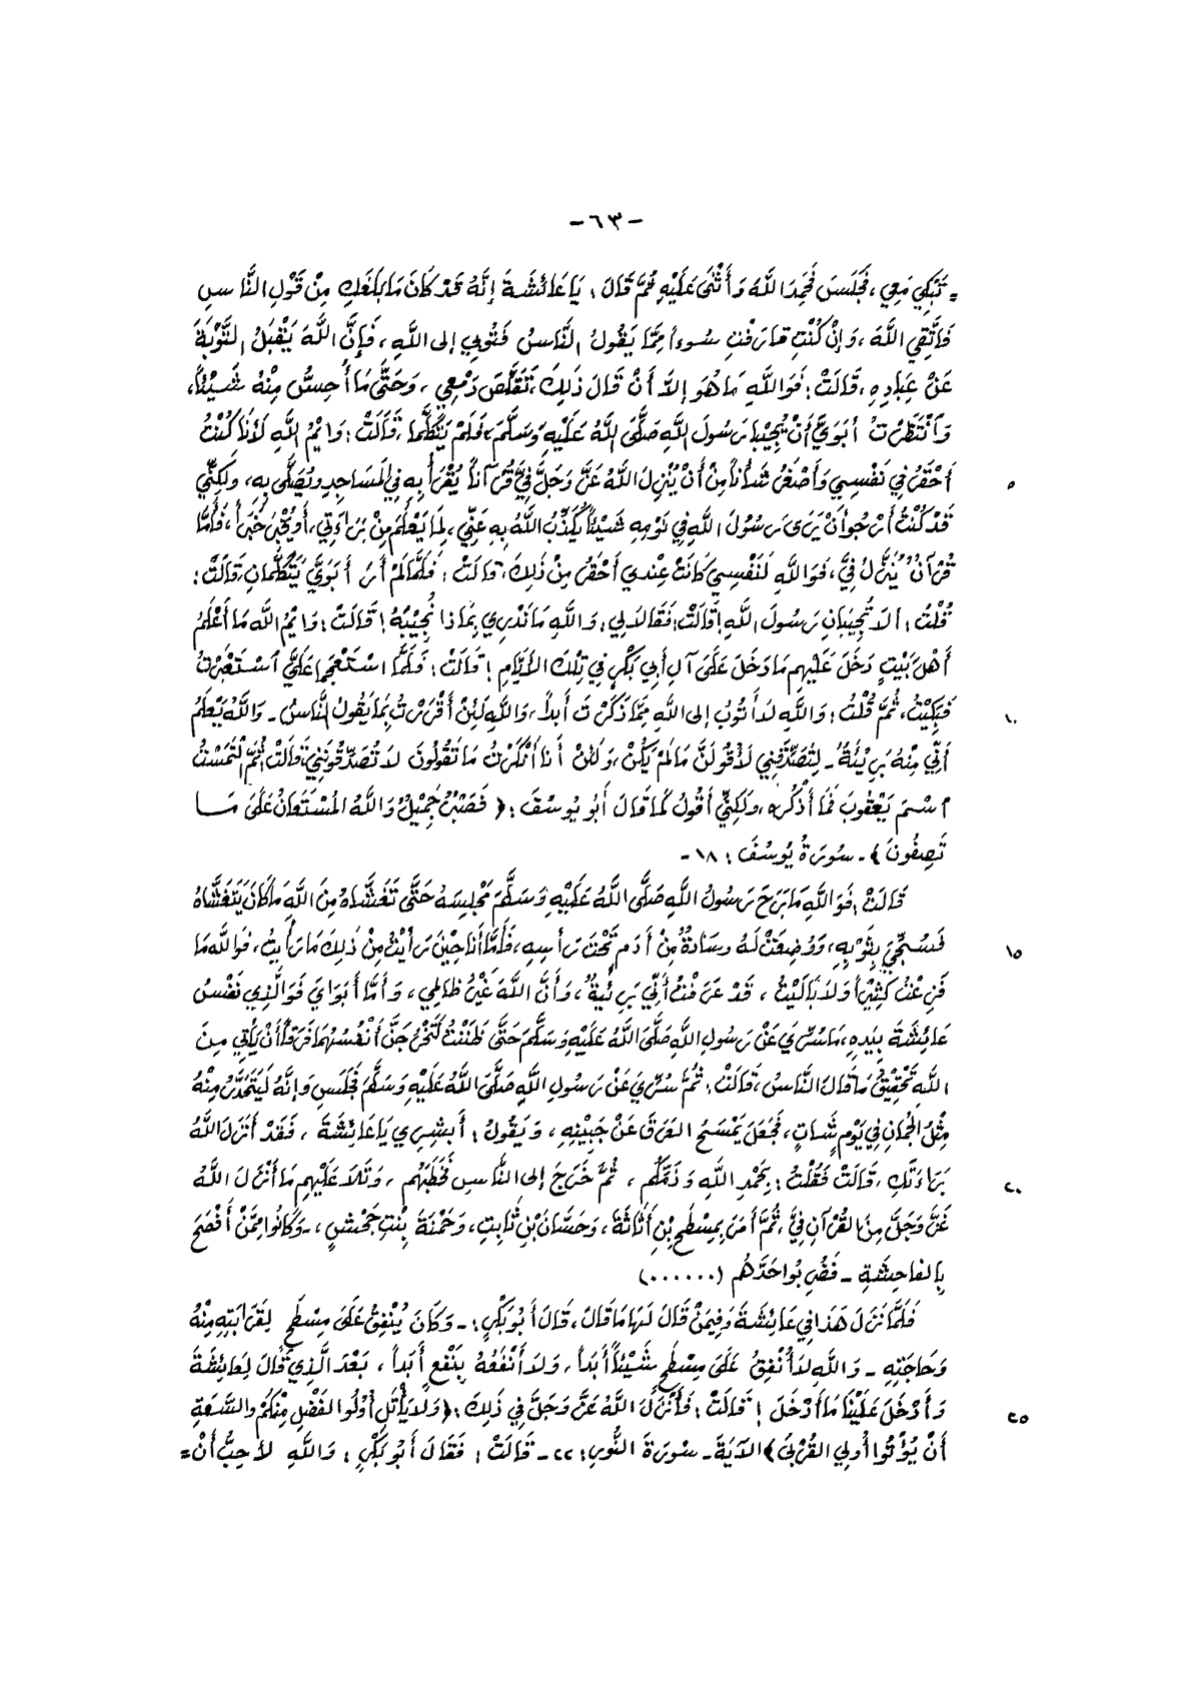 -٦٣-
= تَبْكِي مَعِي ، فَجَلَسَ فَحَمِدَ اللَّهَ وَأَثْنَى عَلَيْهِ ثُمَّ قَالَ : يَا عَائِشَةَ إِنَّهُ قَدْ كَانَ مَا بَلَغَكِ مِنْ قَوْلِ النَّاسِ
فَاتَّقِي اللَّهَ ، وَإِنْ كُنْتِ قارَفْتِ سُوءاً مِمَّا يَقُولُ النَّاسُ فَتُوبِي إلى اللَّهِ ، فَإِنَّ اللَّهَ يَقْبَلُ التَّوْبَةَ
عَنْ عِبَادِهِ ، قَالَتْ : فَوَاللَّهِ مَا هُوَ إلاَّ أَنْ قَالَ ذَلِكَ ، تَقَلَّصَ دَمْعِي ، وَحَتَّى مَا أُحِسُّ مِنْهُ شَيْئاً ،
وَانْتَظَرْتُ أَبَوَيَّ أَنْ يُجِيْبَا رَسُولَ اللَّهِ صَلَّى اللَّهُ عَلَيْهِ وَسَلَّمَ ، فَلَمْ يَتَكَلَّمَا ، قَالَتْ : وَايْمُ اللَّهِ لَأَنَا كُنْتُ
أَحْقَرُ فِي نَفْسِي وَأَصْغَرُ شَأْناً مِنْ أَنْ يُنْزِلَ اللَّهُ عَزَّ وَجَلَّ فِيَّ قُرْآناً يُقْرَأُ بِهِ فِي المَسَاجِدِ وَيُصَلَّى بِهِ ، وَلَكِنِّي
٥
قَدْ كُنْتُ أَرْجُو أَنْ يَرَى رَسُولُ اللَّهِ فِي نَوْمِهِ شَيْئاً يُكَذِّبُ اللَّهُ بِهِ عَنِّي ، لِمَا يَعْلَمُ مِنْ بَرَاءَتِي ، أَوْ يُخْبَرُ خَبَراً ، فَأَمَّا
قُرْآنٌ يُنَزَّلُ فِيَّ ، فَوَاللَّهِ لَنَفْسِي كَانَتْ عِنْدِي أَحْقَرُ مِنْ ذَلِكَ ، قَالَتْ : فَلَمَّا لَمْ أَرَ أَبَوَيَّ يَتَكَلَّمَانِ ، قَالَتْ :
قُلْتُ : ألاَ تُجِيبَانِ رَسُولَ اللَّهِ ! قَالَتْ : فَقَالاَ لِي : وَاللَّهِ مَا نَدْرِي بِمَاذا نُجِيْبُهُ ! قَالَتْ : وَايْمُ اللَّه مَا أَعْلَمُ
أَهْلَ بَيْتٍ دَخَلَ عَلَيْهِم مَا دَخَلَ عَلَى آلِ أَبِي بَكْرٍ فِي تِلْكَ الأَيَّامِ ! قَالَتْ : فَلَمَّا اسْتَعْجَمَا عَلَيَّ اسْتَعْبَرْتُ
فَبَكَيْتُ ، ثُمَّ قُلْتُ : وَاللَّهِ لاَ أَتُوبُ إلى اللَّهِ مِمَّا ذَكَرْتَ أَبَداً ، وَاللَّهِ لَئِنْ أَقْرَرْتُ بِمَا يَقُولُ النَّاسُ - وَاللَّهُ يَعْلَمُ
١٠
أَنِّي مِنْهُ بَرِيْئَةٌ - لِتُصَدِّقُنِي لَأَقُولَنَّ مَا لَمْ يَكُنْ ، وَلَئِنْ أَنَا أَنْكَرْتُ مَا تَقُولُونَ لاَ تُصَدِّقُونَنِي ، قَالَتْ : ثُمَّ الْتَمَسْتُ
اسْمَ يَعْقُوبَ فَمَا أَذْكُرُهُ ، وَلَكِنِّي أَقُولُ كَمَا قَالَ أَبُو يُوسُفَ : ﴿ فَصَبْرٌ جَمِيْلٌ وَاللَّهُ المُسْتَعَانُ عَلَى مَا
تَصِفُونَ ﴾ - سُورَةُ يُوسُفَ : ١٨ -
قَالَتْ : فَوَاللَّهِ مَا بَرَحَ رَسُولُ اللَّهِ صَلَّى اللَّهُ عَلَيْهِ وَسَلَّمَ مَجْلِسَهُ حَتَّى تَغَشَّاهُ مِنَ اللَّهِ مَا كَانَ يَتَغَشَّاهُ
فَسُجِّيَ بِثَوْبِهِ ، وَوُضِعَتْ لَهُ وِسَادَةٌ مِنْ أَدَمٍ تَحْتَ رَأْسِهِ ، فَأَمَّا أَنَا حِيْنَ رَأَيْتُ مِنْ ذَلِكَ مَا رَأَيتُ ، فَوَاللَّهِ مَا
١٥
فَزِعْتُ كَثِيْراً وَلاَ بَالَيْتُ ، قَدْ عَرَفْتُ أَنِّي بَرِيْئَةٌ ، وَأَنَّ اللَّهَ غَيْرُ ظَالِمِي ، وَأَمَّا أَبَوَايَ فَوَالَّذِي نَفْسُ
عَائِشَةَ بِيَدِهِ ، مَا سُرِّيَ عَنْ رَسُولِ اللَّهِ صَلَّى اللَّهُ عَلَيْهِ وَسَلَّمَ حَتَّى ظَنَنْتُ لَتَخْرُجَنَّ أَنْفُسُهُمَا فَرَقاً أَنْ يَأْتِي مِنَ
اللَّهِ تَحْقِيْقُ مَا قَالَ النَّاسُ ، قَالَتْ : ثُمَّ سُرِّيَ عَنْ رَسُولِ اللَّهِ صَلَّى اللَّهُ عَلَيْهِ وَسَلَّمَ فَجَلَسَ وَإِنَّهُ لَيَتَحَدَّرُ مِنْهُ
مِثْلُ الجُمَانِ فِي يَوْمٍ شَاتٍ ، فَجَعَلَ يَمْسَحُ العَرَقَ عَنْ جَبِيْنِهِ ، وَيَقُولُ : أَبشِرِي يَا عَائِشَةَ ، فَقَدْ أَنْزَلَ اللَّهُ
بَرَاءَتَكِ ، قَالَتْ فَقُلْتُ : بِحَمْدِ اللَّهِ وَذَمِّكُم ، ثُمَّ خَرَجَ إلى النَّاسِ فَخَطَبَهُم ، وَتَلاَ عَلَيْهِم مَا أَنْزَلَ اللَّهُ
٢٠
عَزَّ وَجَلَّ مِنَ القُرْآنِ فِيَّ ، ثُمَّ أَمَرَ بِمِسْطَحِ بْنِ أُثَاثَةَ ، وَحَسَّانَ بْنِ ثَابِتٍ ، وَحَمْنَةَ بِنْتِ جَحْشٍ ، - وَكَانُوا مِمَّنْ أَفْصَحَ
بِالفَاحِشَةِ - فَضُرِبُوا حَدَّهُم (......)
فَلَمَّا نَزَلَ هَذَا فِي عَائِشَةَ وَفِيمَنْ قَالَ لَهَا مَا قَالَ ، قَالَ أَبُو بَكْرٍ : - وَكَانَ يُنْفِقُ عَلَى مِسْطَحٍ لِقَرَابَتِهِ مِنْهُ
وَحَاجَتِهِ - وَاللَّهِ لاَ أُنْفِقُ عَلَى مِسْطَحٍ شَيْئاً أَبَداً ، وَلاَ أَنْفَعُهُ بِنَفْعٍ أَبَداً ، بَعْدَ الَّذِي قَالَ لِعَائِشَةَ
وَأَدْخَلَ عَلَيْنَا مَا أَدْخَلَ ! قَالَتْ : فَأَنْزَلَ اللَّهُ عَزَّ وَجَلَّ فِي ذَلِكَ : ﴿ وَلاَ يَأْتَلِ أُوْلُوا الفَضْلِ مِنْكُمْ وَالسَّعَةِ
٢٥
أَنْ يُؤْتُوا أُولِي القُرْبَى ﴾ الآيَةَ - سُورَةَ النُّورِ : ٢٢ - قَالَتْ : فَقَالَ أَبُو بَكْرٍ : وَاللَّهِ لأُحِبُّ أَنْ =